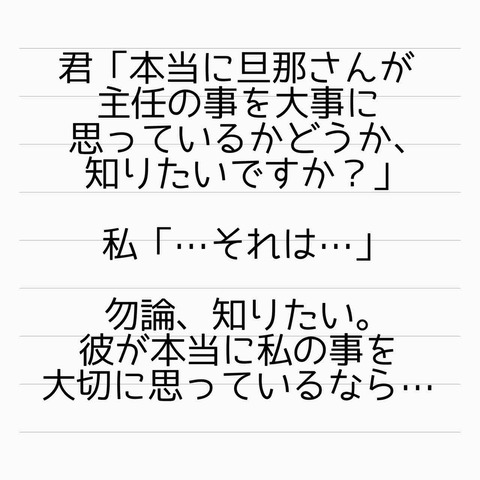 君「本当に旦那さんが
主任の事を大事に
思っているかどうか、
知りたいですか？」
私「…それは…」
勿論、知りたい。
彼が本当に私の事を
大切に思っているなら…